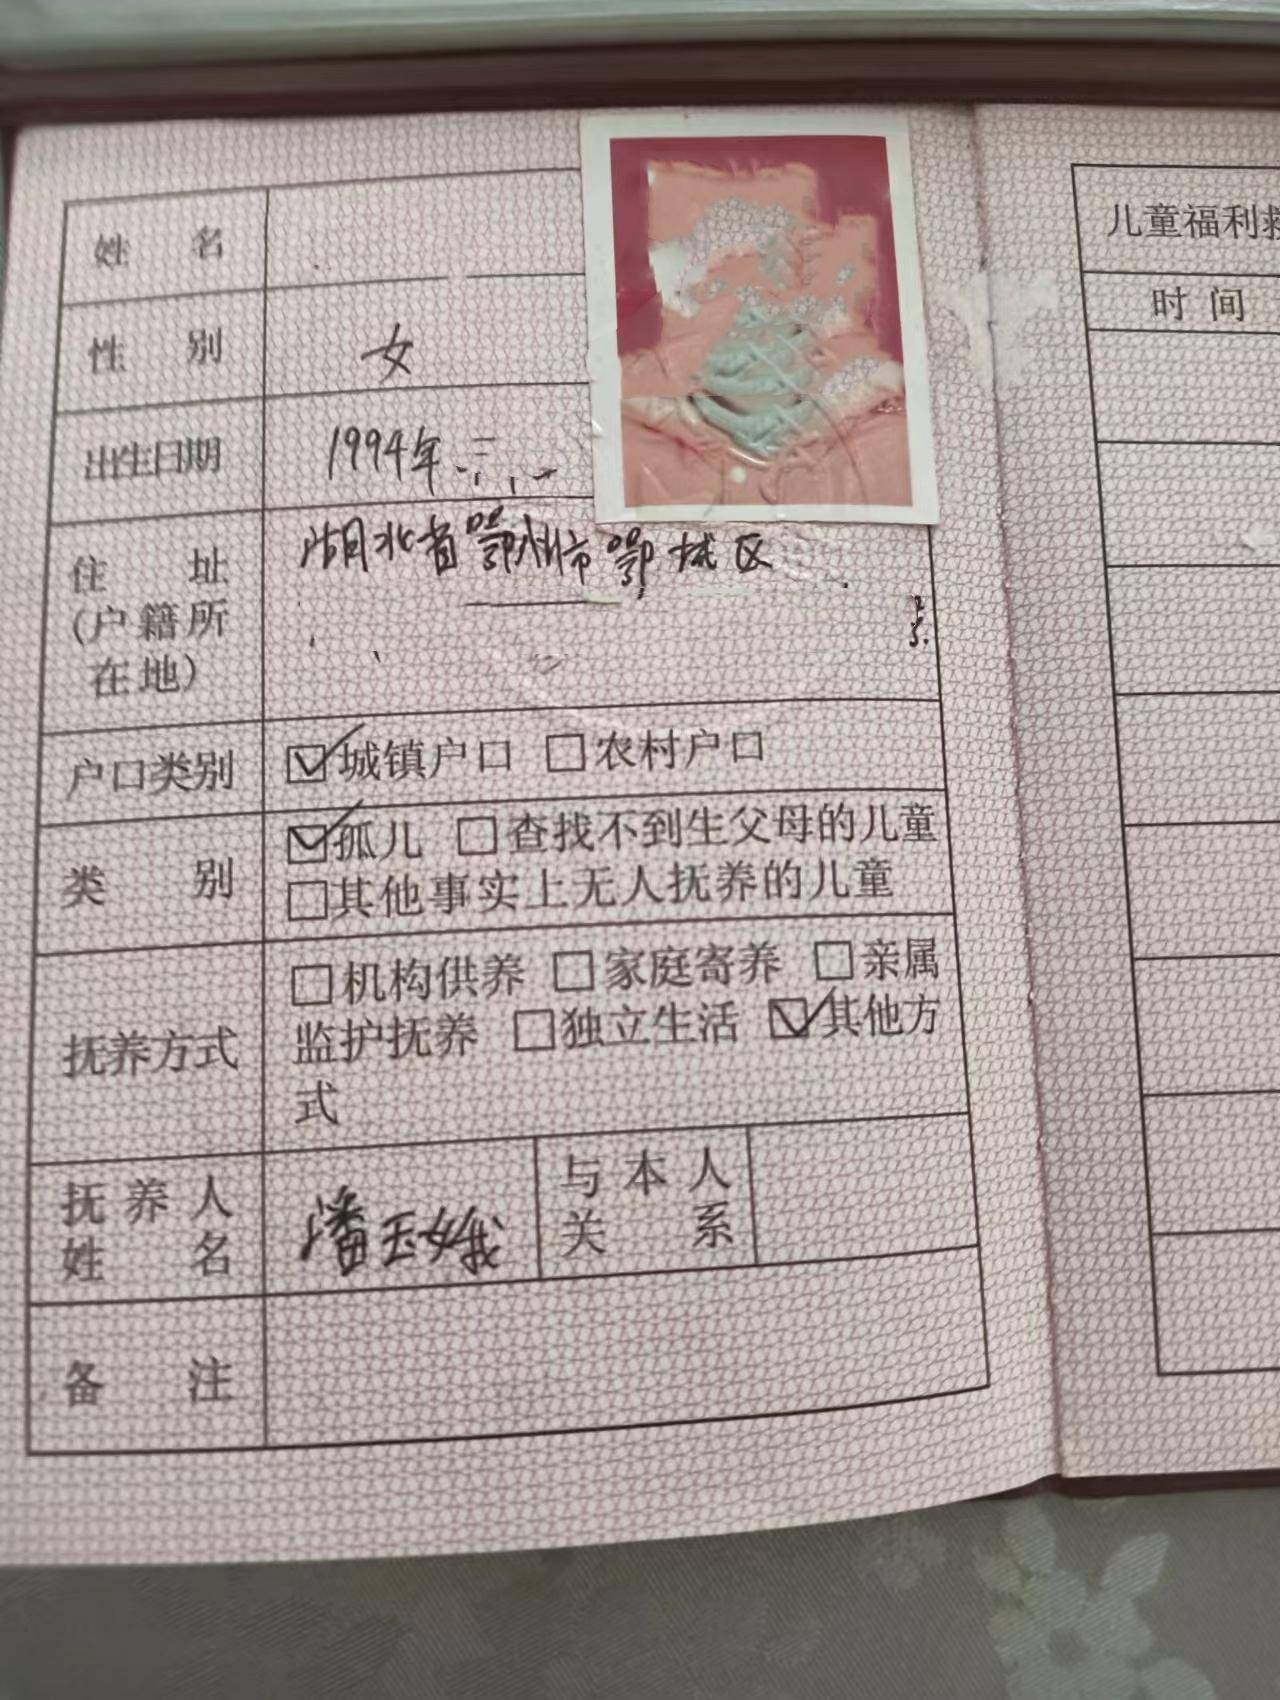 姓名
性别 女
出生日期 1994年
住址
(户籍所
在地)
湖北省鄂州市鄂城区
户口类别 ☑城镇户口 □农村户口
类别
☑孤儿 □查找不到生父母的儿童
□其他事实上无人抚养的儿童
抚养方式
□机构供养 □家庭寄养 □亲属
监护抚养 □独立生活 ☑其他方
式
抚养人
姓名
潘玉娥
与本人
关系
备注
儿童福利救
时间